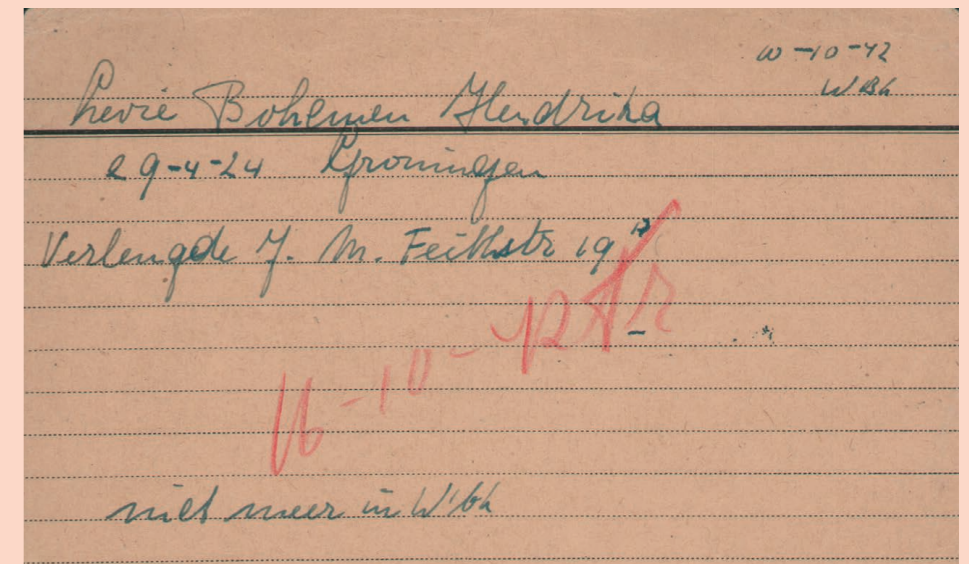 10-10-42
W'Bk
Levie Bohemen Hendrika
29-4-24 Groningen
Verlengde J. M. Feithstr 19
16-10-42 Tr
niet meer in W'bk